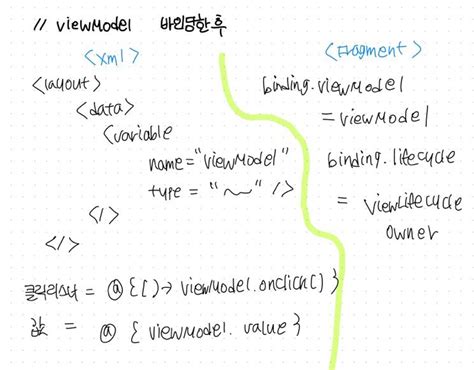 // viewModel 바인딩한 후
<xml>
<layout>
<data>
<variable
name="viewModel"
type = "~" />
</>
</>
클릭리스너 = @{()→ viewModel.onclick()}
값 = @{viewModel.value}
<Fragment>
binding.viewModel
= viewModel
binding.lifecycle
= viewLifecycle
owner